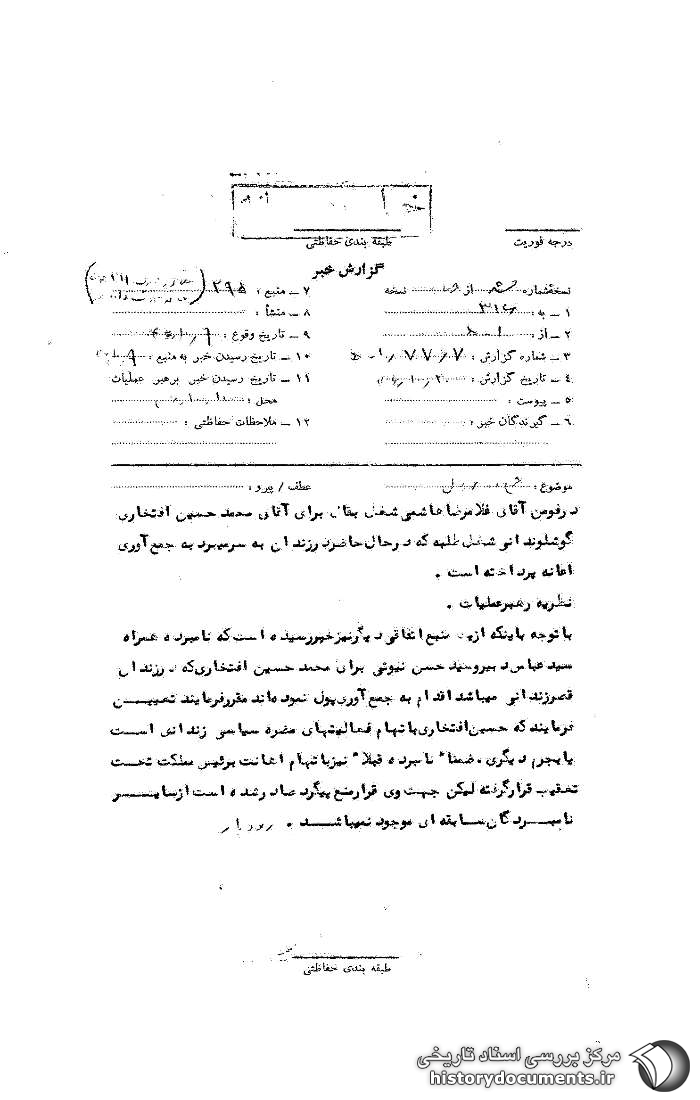 طبقه بندی حفاظتی
درجه فوریت
گزارش خبر
نسخهٔشماره از نسخه
۱ ــ به : ۳۱۲
۲ ــ از :
۳ ــ شماره گزارش :
۴ ــ تاریخ گزارش :
۵ ــ پیوست :
۶ ــ گیرندگان خبر :
۷ ــ منبع : ۲۹۵
۸ ــ منشأ :
۹ ــ تاریخ وقوع :
۱۰ ــ تاریخ رسیدن خبر به منبع :
۱۱ ــ تاریخ رسیدن خبر برهبر عملیات
محل :
۱۲ ــ ملاحظات حفاظتی :
موضوع :
عطف / پیرو :
درفومن آقای غلامرضا هاشمی شغل بقال برای آقای محمد حسین افتخاری
گوشلوندانی شغل طلبه که درحال حاضر در زندان به سرمیبرد به جمع آوری
اعانه پرداخته است .
نظریه رهبرعملیات .
با توجه باینکه از منبع اتفاقی دیگرنیزخبررسیده است که نامبرده همراه
سید عباس دبیروسید حسن نبوئی برای محمد حسین افتخاری که در زندان
قصرزندانی میباشد اقدام به جمع آوری پول نموده اند مقررفرمایند تعیین
فرمایند که حسین افتخاری باتهام فعالیتهای مضره سیاسی زندانی است
یا بجرم دیگری . ضمنا" نامبرده قبلا" نیزباتهام اهانت برئیس مملکت تحت
تعقیب قرارگرفته لیکن جهت وی قرارمنع پیگرد صادرشده است ازسایر
نامبردگان سابقه ای موجود نمیباشد . رودبار
طبقه بندی حفاظتی
مرکز بررسی اسناد تاریخی
historydocuments.ir